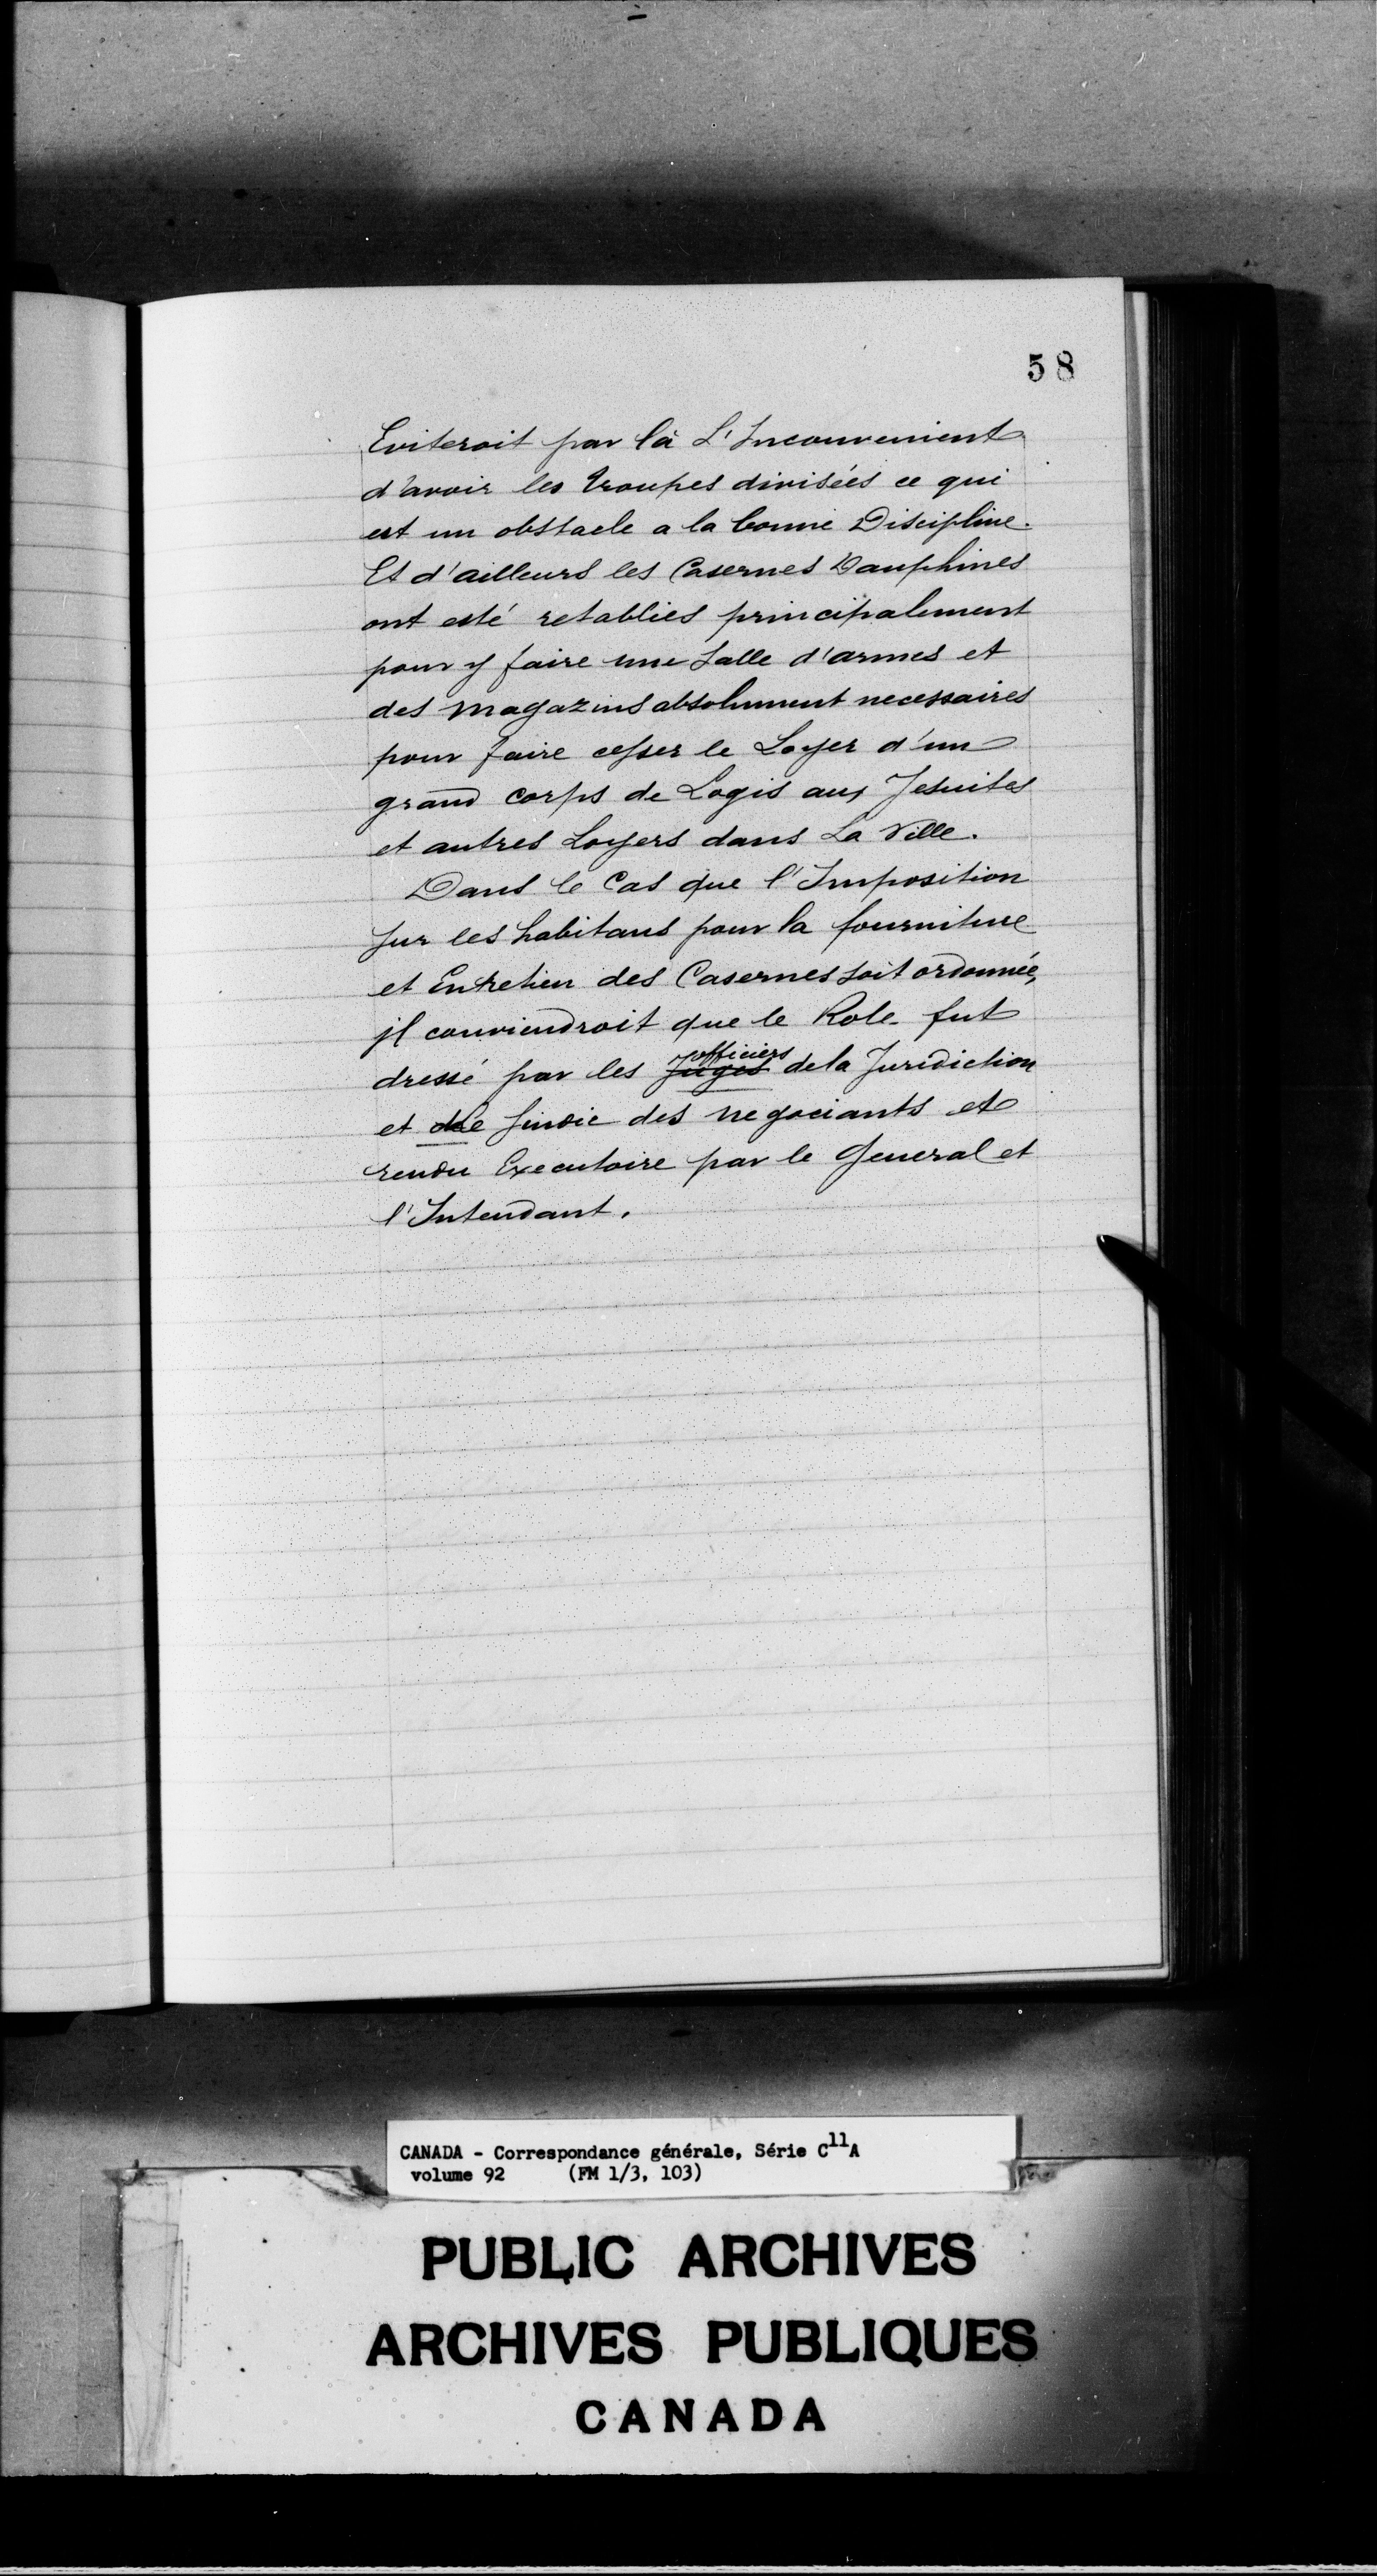 58
Eviteroit par là L'Inconvenient
d'avoir les troupes divisées ce qui
est un obstacle a la bonne Discipline.
Et d'ailleurs les Casernes Dauphines
ont esté retablies principalement
pour y faire une Salle d'armes et
des magazins absolument necessaires
pour faire cesser le Loyer d'un
grand corps de Logis aux Jesuites
et autres Loyers dans La Ville.
Dans le Cas que l'Imposition
sur les habitans pour la fourniture
et Entretien des Casernes soit ordonnée,
jl conviendroit que le Role fut
officiers
dressé par les Juges de la Juridiction
et le Sindic des negociants et
rendu Executoire par le General et
l'Intendant.
CANADA - Correspondance générale, Série C11A
volume 92 (FM 1/3, 103)
PUBLIC ARCHIVES
ARCHIVES PUBLIQUES
CANADA